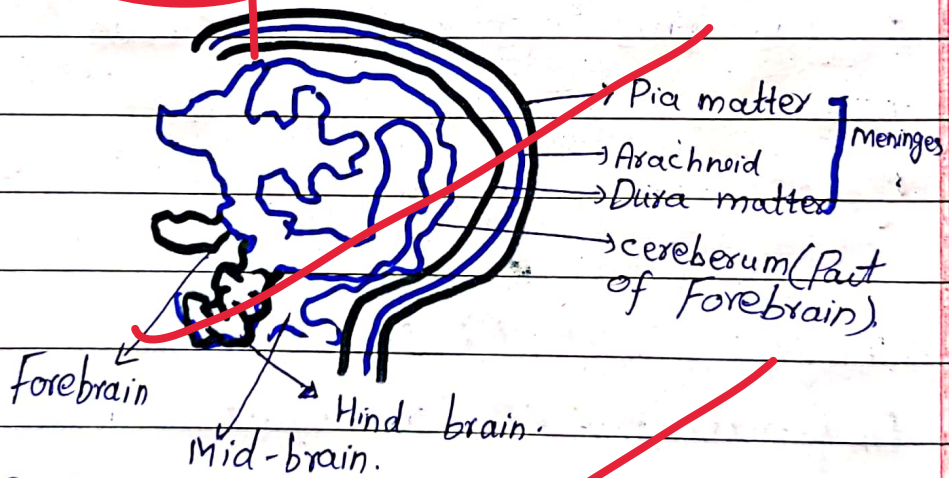 Pia matter
Meninges
Arachnoid
Dura matter
cereberum (Part
of Forebrain).
Forebrain
Hind brain.
Mid-brain.